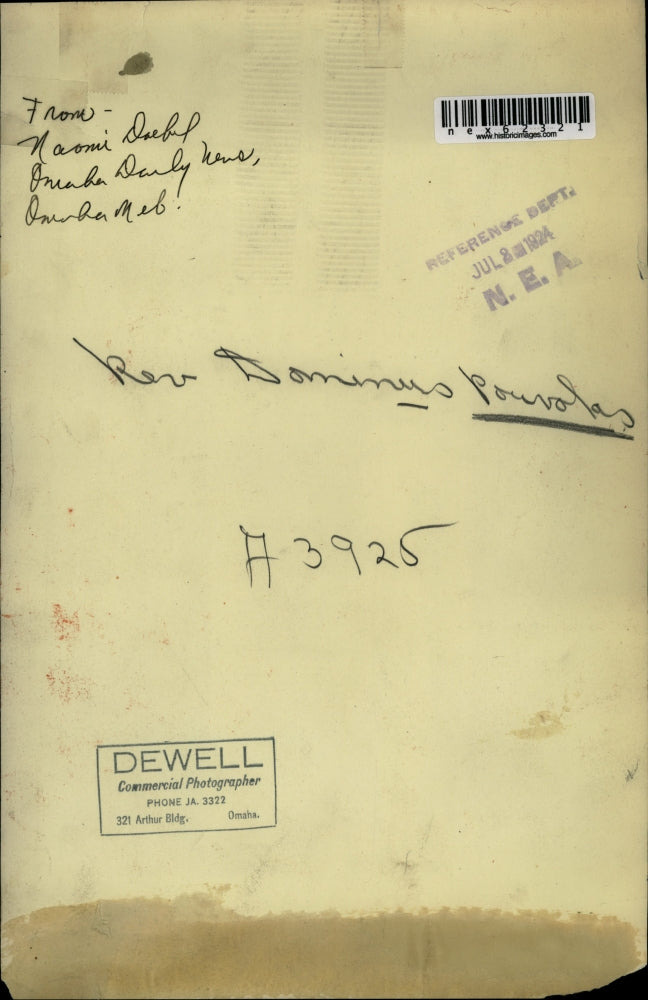 From -
Naomi Doebel
Omaha Daily News,
Omaha Neb.
nex62321
www.historicimages.com
REFERENCE DEPT.
JUL 2 1924
N. E. A.
Rev Dominus Pouvolas
A 3925
DEWELL
Commercial Photographer
PHONE JA. 3322
321 Arthur Bldg. Omaha.